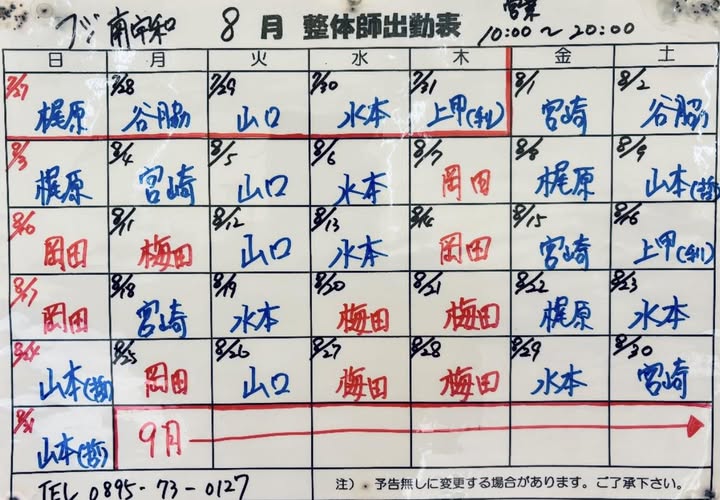 フジ南宇和 8月 整体師出勤表 営業 10:00～20:00
日 月 火 水 木 金 土
7/27 7/28 7/29 7/30 7/31 8/1 8/2
梶原 谷脇 山口 水本 上甲(利) 宮崎 谷脇
8/3 8/4 8/5 8/6 8/7 8/8 8/9
梶原 宮崎 山口 水本 岡田 梶原 山本(哲)
8/10 8/11 8/12 8/13 8/14 8/15 8/16
岡田 梅田 山口 水本 岡田 宮崎 上甲(利)
8/17 8/18 8/19 8/20 8/21 8/22 8/23
岡田 宮崎 水本 梅田 梅田 梶原 水本
8/24 8/25 8/26 8/27 8/28 8/29 8/30
山本(哲) 岡田 山口 梅田 梅田 水本 宮崎
8/31 9月
山本(哲)
TEL 0895-73-0127 注)・予告無しに変更する場合があります。ご了承下さい。